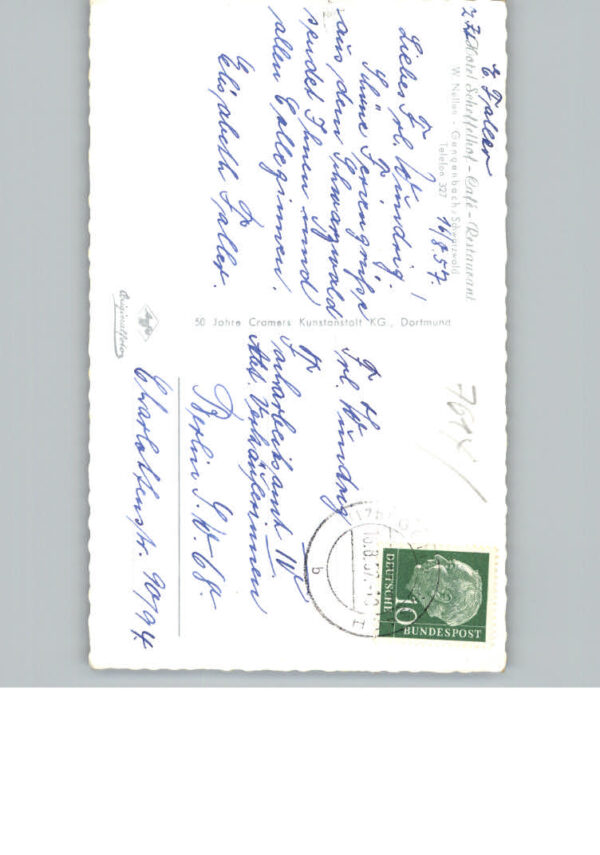 E. Faller
z. Zt. Hotel Scheffelhof - Café - Restaurant
W. Nollen - Gengenbach/Schwarzwald
Telefon 327
16/8.57.
Liebes Frl. Windrig!
Schöne Feriengrüße
aus dem Schwarzwald
sendet Ihnen und
allen Kolleginnen
Elisabeth Faller.
50 Jahre Cramers Kunstanstalt KG., Dortmund
Agfa
Originalfoto
Frl. Windrig
Facharbeitsamt IV
Abt. Verkäuferinnen
Berlin S.W. 68.
Charlottenstr. 90/94.
10
DEUTSCHE
BUNDESPOST
b